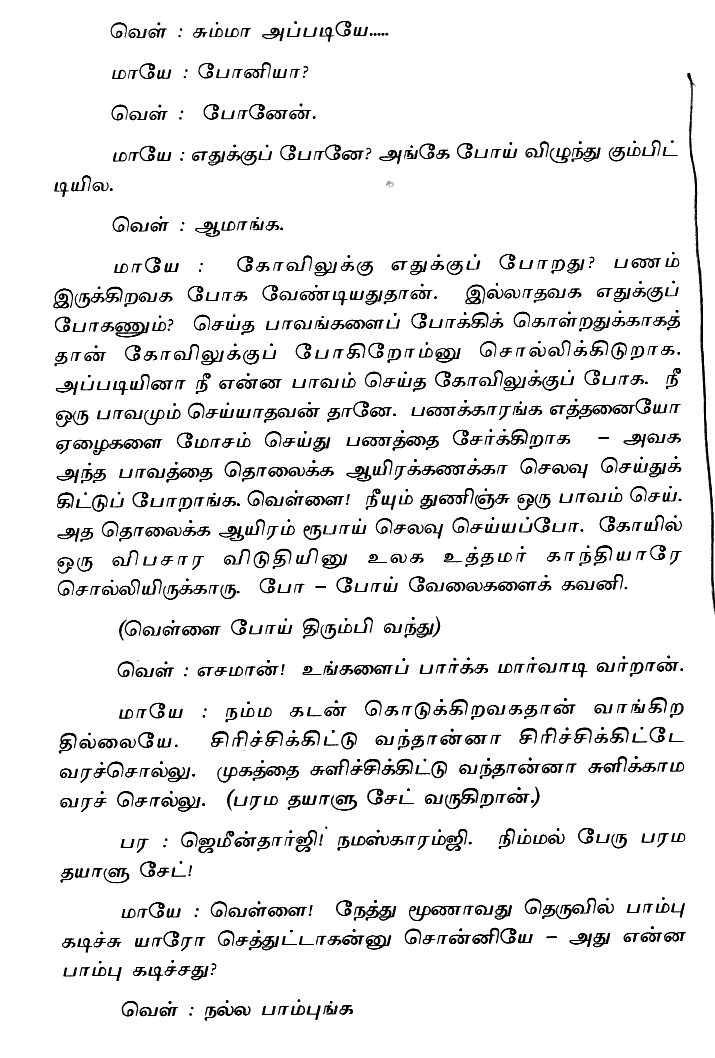 வெள் : சும்மா அப்படியே.....
மாயே : போனியா?
வெள் : போனேன்.
மாயே : எதுக்குப் போனே? அங்கே போய் விழுந்து கும்பிட்
டியில.
வெள் : ஆமாங்க.
மாயே : கோவிலுக்கு எதுக்குப் போறது? பணம்
இருக்கிறவக போக வேண்டியதுதான். இல்லாதவக எதுக்குப்
போகணும்? செய்த பாவங்களைப் போக்கிக் கொள்றதுக்காகத்
தான் கோவிலுக்குப் போகிறோம்னு சொல்லிக்கிடுறாக.
அப்படியினா நீ என்ன பாவம் செய்த கோவிலுக்குப் போக. நீ
ஒரு பாவமும் செய்யாதவன் தானே. பணக்காரங்க எத்தனையோ
ஏழைகளை மோசம் செய்து பணத்தை சேர்க்கிறாக – அவக
அந்த பாவத்தை தொலைக்க ஆயிரக்கணக்கா செலவு செய்துக்
கிட்டுப் போறாங்க. வெள்ளை! நீயும் துணிஞ்சு ஒரு பாவம் செய்.
அத தொலைக்க ஆயிரம் ரூபாய் செலவு செய்யப்போ. கோயில்
ஒரு விபசார விடுதியினு உலக உத்தமர் காந்தியாரே
சொல்லியிருக்காரு. போ – போய் வேலைகளைக் கவனி.
(வெள்ளை போய் திரும்பி வந்து)
வெள் : எசமான்! உங்களைப் பார்க்க மார்வாடி வர்றான்.
மாயே : நம்ம கடன் கொடுக்கிறவகதான் வாங்கிற
தில்லையே. சிரிச்சிக்கிட்டு வந்தான்னா சிரிச்சிக்கிட்டே
வரச்சொல்லு. முகத்தை சுளிச்சிக்கிட்டு வந்தான்னா சுளிக்காம
வரச் சொல்லு. (பரம தயாளு சேட் வருகிறான்.)
பர : ஜெமீன்தார்ஜி! நமஸ்காரம்ஜி. நிம்மல் பேரு பரம
தயாளு சேட்!
மாயே : வெள்ளை! நேத்து மூணாவது தெருவில் பாம்பு
கடிச்சு யாரோ செத்துட்டாகன்னு சொன்னியே – அது என்ன
பாம்பு கடிச்சது?
வெள் : நல்ல பாம்புங்க